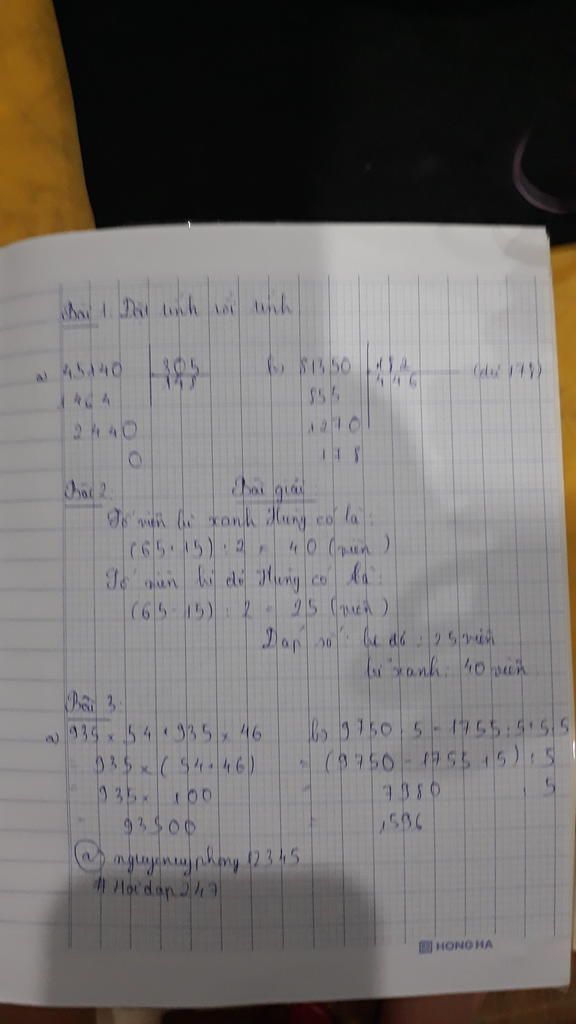 Bài 1. Đặt tính rồi tính
a) 45140 305
148
1464
2440
0
b) 81350 182
446 (dư 178)
855
1270
178
Bài 2. Bài giải
Số viên bi xanh Hùng có là:
(65+15) : 2 = 40 (viên)
Số viên bi đỏ Hùng có là:
(65-15) : 2 = 25 (viên)
Đáp số: bi đỏ: 25 viên
bi xanh: 40 viên
Bài 3:
a) 935 x 54 + 935 x 46
= 935 x (54+46)
= 935 x 100
= 93500
b) 9750 : 5 - 1755 : 5 + 5 : 5
= (9750 - 1755 + 5) : 5
= 7980 : 5
= 1596
@ nguyenuyphong12345
# Hoidap247
HONG HA